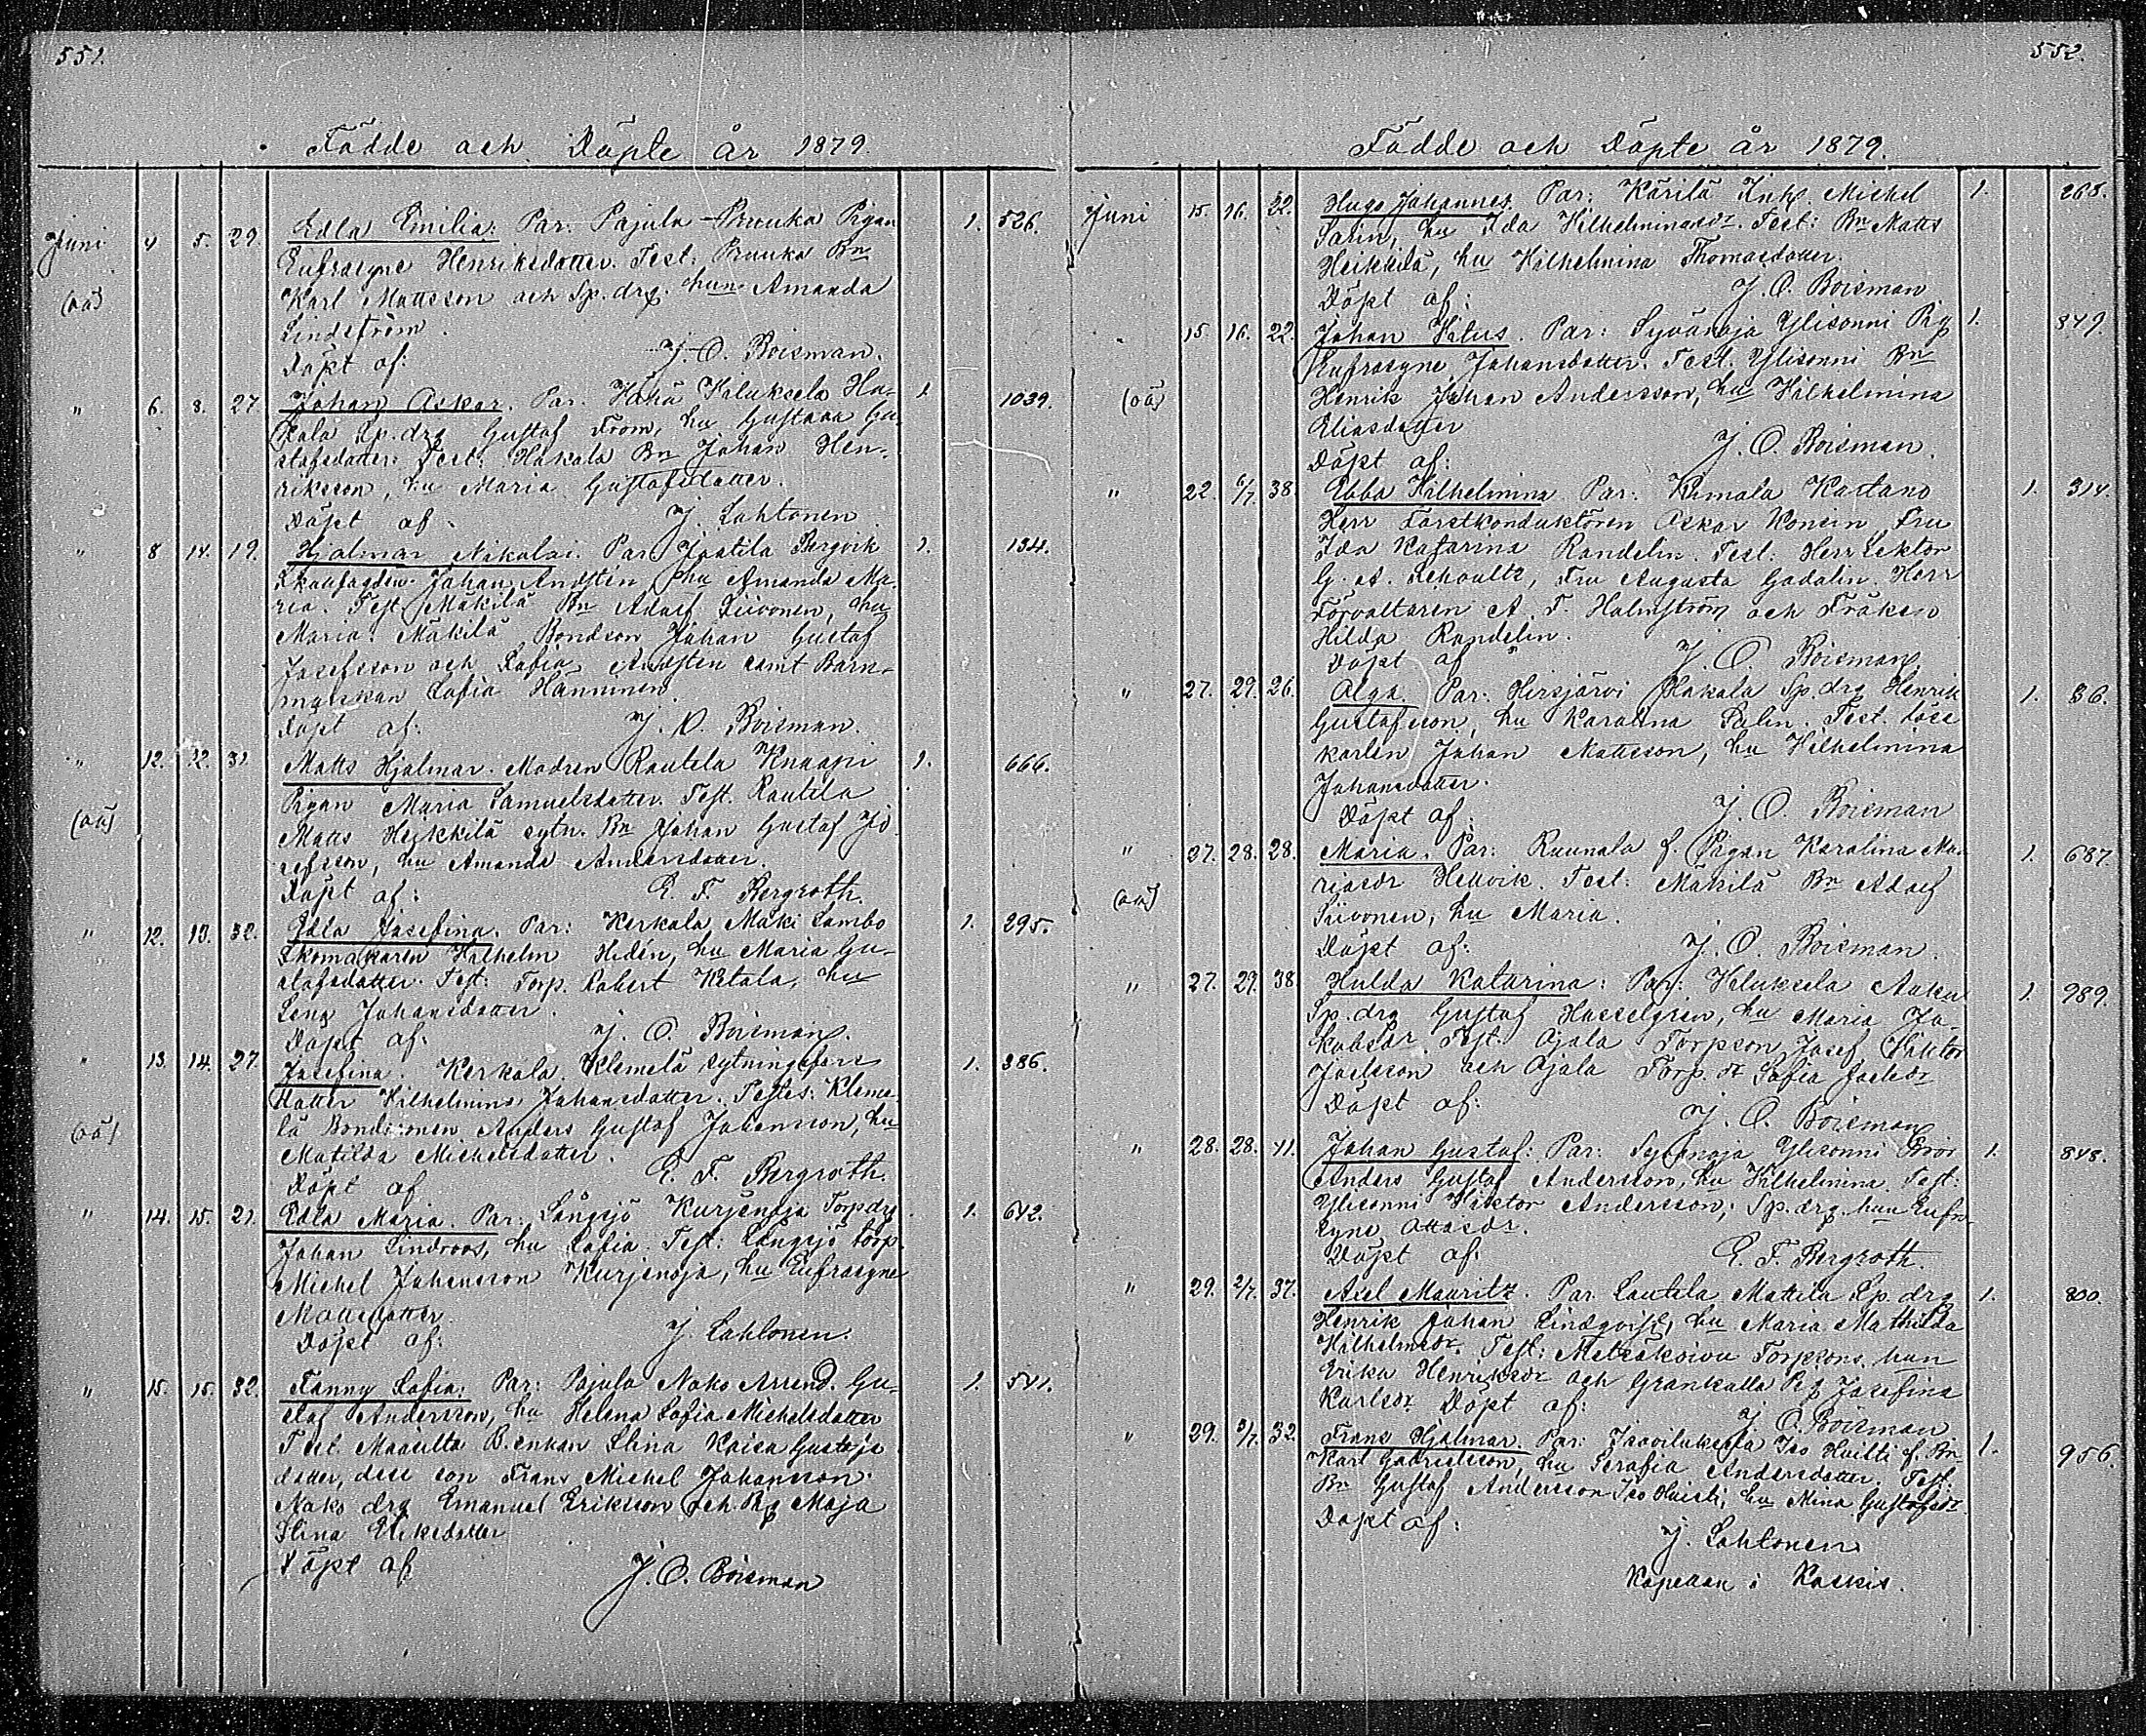 551.
Födde och Döpte år 1879.
Juni 4 5. 29. Edla Emilia: Par: Pajula Prunka Pigan 1. 526.
Eufrosyne Henriksdotter. Test: Prunka Bn
(oä) Karl Mattsson och Sp. drg. hun Amanda
Lindström.
Döpt af: J. O. Boisman.
" 6. 8. 27. Johan Oskar. Par. Viluksela Ha- 1. 1039.
kala Sp. drg Gustaf From, hu Gustava Gu-
stafsdotter. Test: Hakala Bn Johan Hen-
riksson, hu Maria Gustafsdotter.
Döpt af J. Lahtonen
" 8 14. 19. Hjalmar Nikolai. Par. Bergvik 1. 134.
Johan Andstén, hu Amanda Ma-
ria. Test. Mäkilä Bn Adolf Siivonen, hu
Maria. Mäkilä Bondson Johan Gustaf
Josefsson och Sofia Andstén samt Barn-
morskan Sofia Hänninen.
Döpt af: J. O. Boisman.
" 12. 22. 31. Matts Hjalmar. Modren Rautela Knaapi 1. 666.
Pigan Maria Samuelsdotter. Test. Rautela
(oä) Matts Heikkilä sytn. Bn Johan Gustaf Jo-
sefsson, hu Amanda Andersdotter.
Döpt af: E. F. Bergroth.
" 12. 13. 32. Edla Josefina. Par: Kerkola Mäki Sambo 1. 295.
Skomakaren Wilhelm Hidén, hu Maria Gu-
stafsdotter. Test: Torp. Robert Ketola, hu
Lena Johansdotter.
Döpt af: J. O. Boisman.
" 13. 14. 27. Josefina. Kerkola Klemelä sytningsfars 1. 386.
dotter Wilhelmina Johansdotter. Testes: Kleme-
(oä) lä Anders Gustaf Johansson, hu
Matilda Michelsdotter.
Döpt af E. F. Bergroth.
" 14. 15. 21. Edla Maria. Par: Långsjö Kurjenoja Torpdrg 1. 642.
Johan Lindroos, hu Sofia. Test: Långsjö torp.
Michel Johansson Kurjenoja, hu Eufrosyne
Mattsdotter.
Döpt af: J. Lahtonen.
" 15. 15. 32. Fanny Sofia. Par: Pajula Noko Arrend. Gu- 1. 541.
staf Andersson, hu Helena Sofia Michelsdotter
Test. B.enkan Stina Kaisa Gustafs
dotter, dess son Frans Michel Johansson.
Noko drg Emanuel Eriksson och Pig Maja
Stina Eriksdotter
Döpt af J. O. Boisman
552.
Födde och Döpte år 1879.
Juni 15. 16. 32. Hugo Johannes. Par: Kärilä Inh. Michel 1. 268.
Sarin, hu Ida Wilhelminasdr. Test: Bn Matts
Heikkilä, hu Wilhelmina Thomasdotter.
Döpt af: J. O. Boisman
15. 16. 22. Johan Vitus. Par: Syvänoja Ylisonni Pig 1. 849.
Eufrosyne Johansdotter. Test. Ylisonni Bn
(oä) Henrik Johan Andersson, hu Wilhelmina
Eliasdotter
Döpt af: J. O. Boisman.
" 22. 6/7. 38. Ebba Wilhelmina. Par: Vimala Kartano 1. 314.
Herr Forstkonduktören Oskar Fru
Ida Katarina Randelin. Test: Herr Lektor
G. A. Schoultz, Fru Augusta Gadolin. Herr
Förvaltaren A. F. Holmström och Fröken
Hilda Randelin.
Döpt af J. O. Boisman
" 27. 29. 26. Olga. Par: Hirsjärvi Hakala Sp. drg Henrik 1. 36.
Gustafsson, hu Karolina Salin. Test. löse
karlen Johan Mattsson, hu Wilhelmina
Johansdotter.
Döpt af: J. O. Boisman
" 27. 28. 28. Maria. Par: Ruunala f. Pigan Karolina Ma- 1. 687.
(oä) riasdr Hellvik. Test: Mäkilä Bn Adolf
Siivonen, hu Maria.
Döpt af: J. O. Boisman.
" 27. 29. 38. Hulda Katarina: Par: Viluksela Auku 1. 989.
Sp. drg Gustaf Hasselgren, hu Maria Ja-
kobsdr. Test. Ojala Torpson Josef Viktor
Joelsson och Ojala Torp. dr Sofia Joelsdr
Döpt af: J. O. Boisman
" 28. 28. 41. Johan Gustaf: Par: Syvänoja Ylisonni Bror 1. 848.
Anders Gustaf Andersson, hu Wilhelmina. Test:
Ylisonni Viktor Andersson, Sp. drg. hun Eufro-
syne Ottosdr.
Döpt af: E. F. Bergroth.
" 29. 2/7. 37. Axel Mauritz. Par. Sautela Mattila Sp. drg 1. 800.
Henrik Johan Lindqvist, hu Maria Mathilda
Wilhelmsdr. Test: Metsäkoivu Torpsons hun
Erika Henriksdr och Grankulla Pig Josefina
Karlsdr Döpt af: J. O. Boisman
" 29. 5/7. 32. Frans Hjalmar. Par: Isoviluksela Iso Huisti f. Bn 1. 956.
Karl Gabrielsson, hu Serafia Andersdotter. Test:
Bn Gustaf Andersson Iso Huisti, hu Mina Gustafsdr.
Döpt af: J. Lahtonen
Kapellan i Koskis.